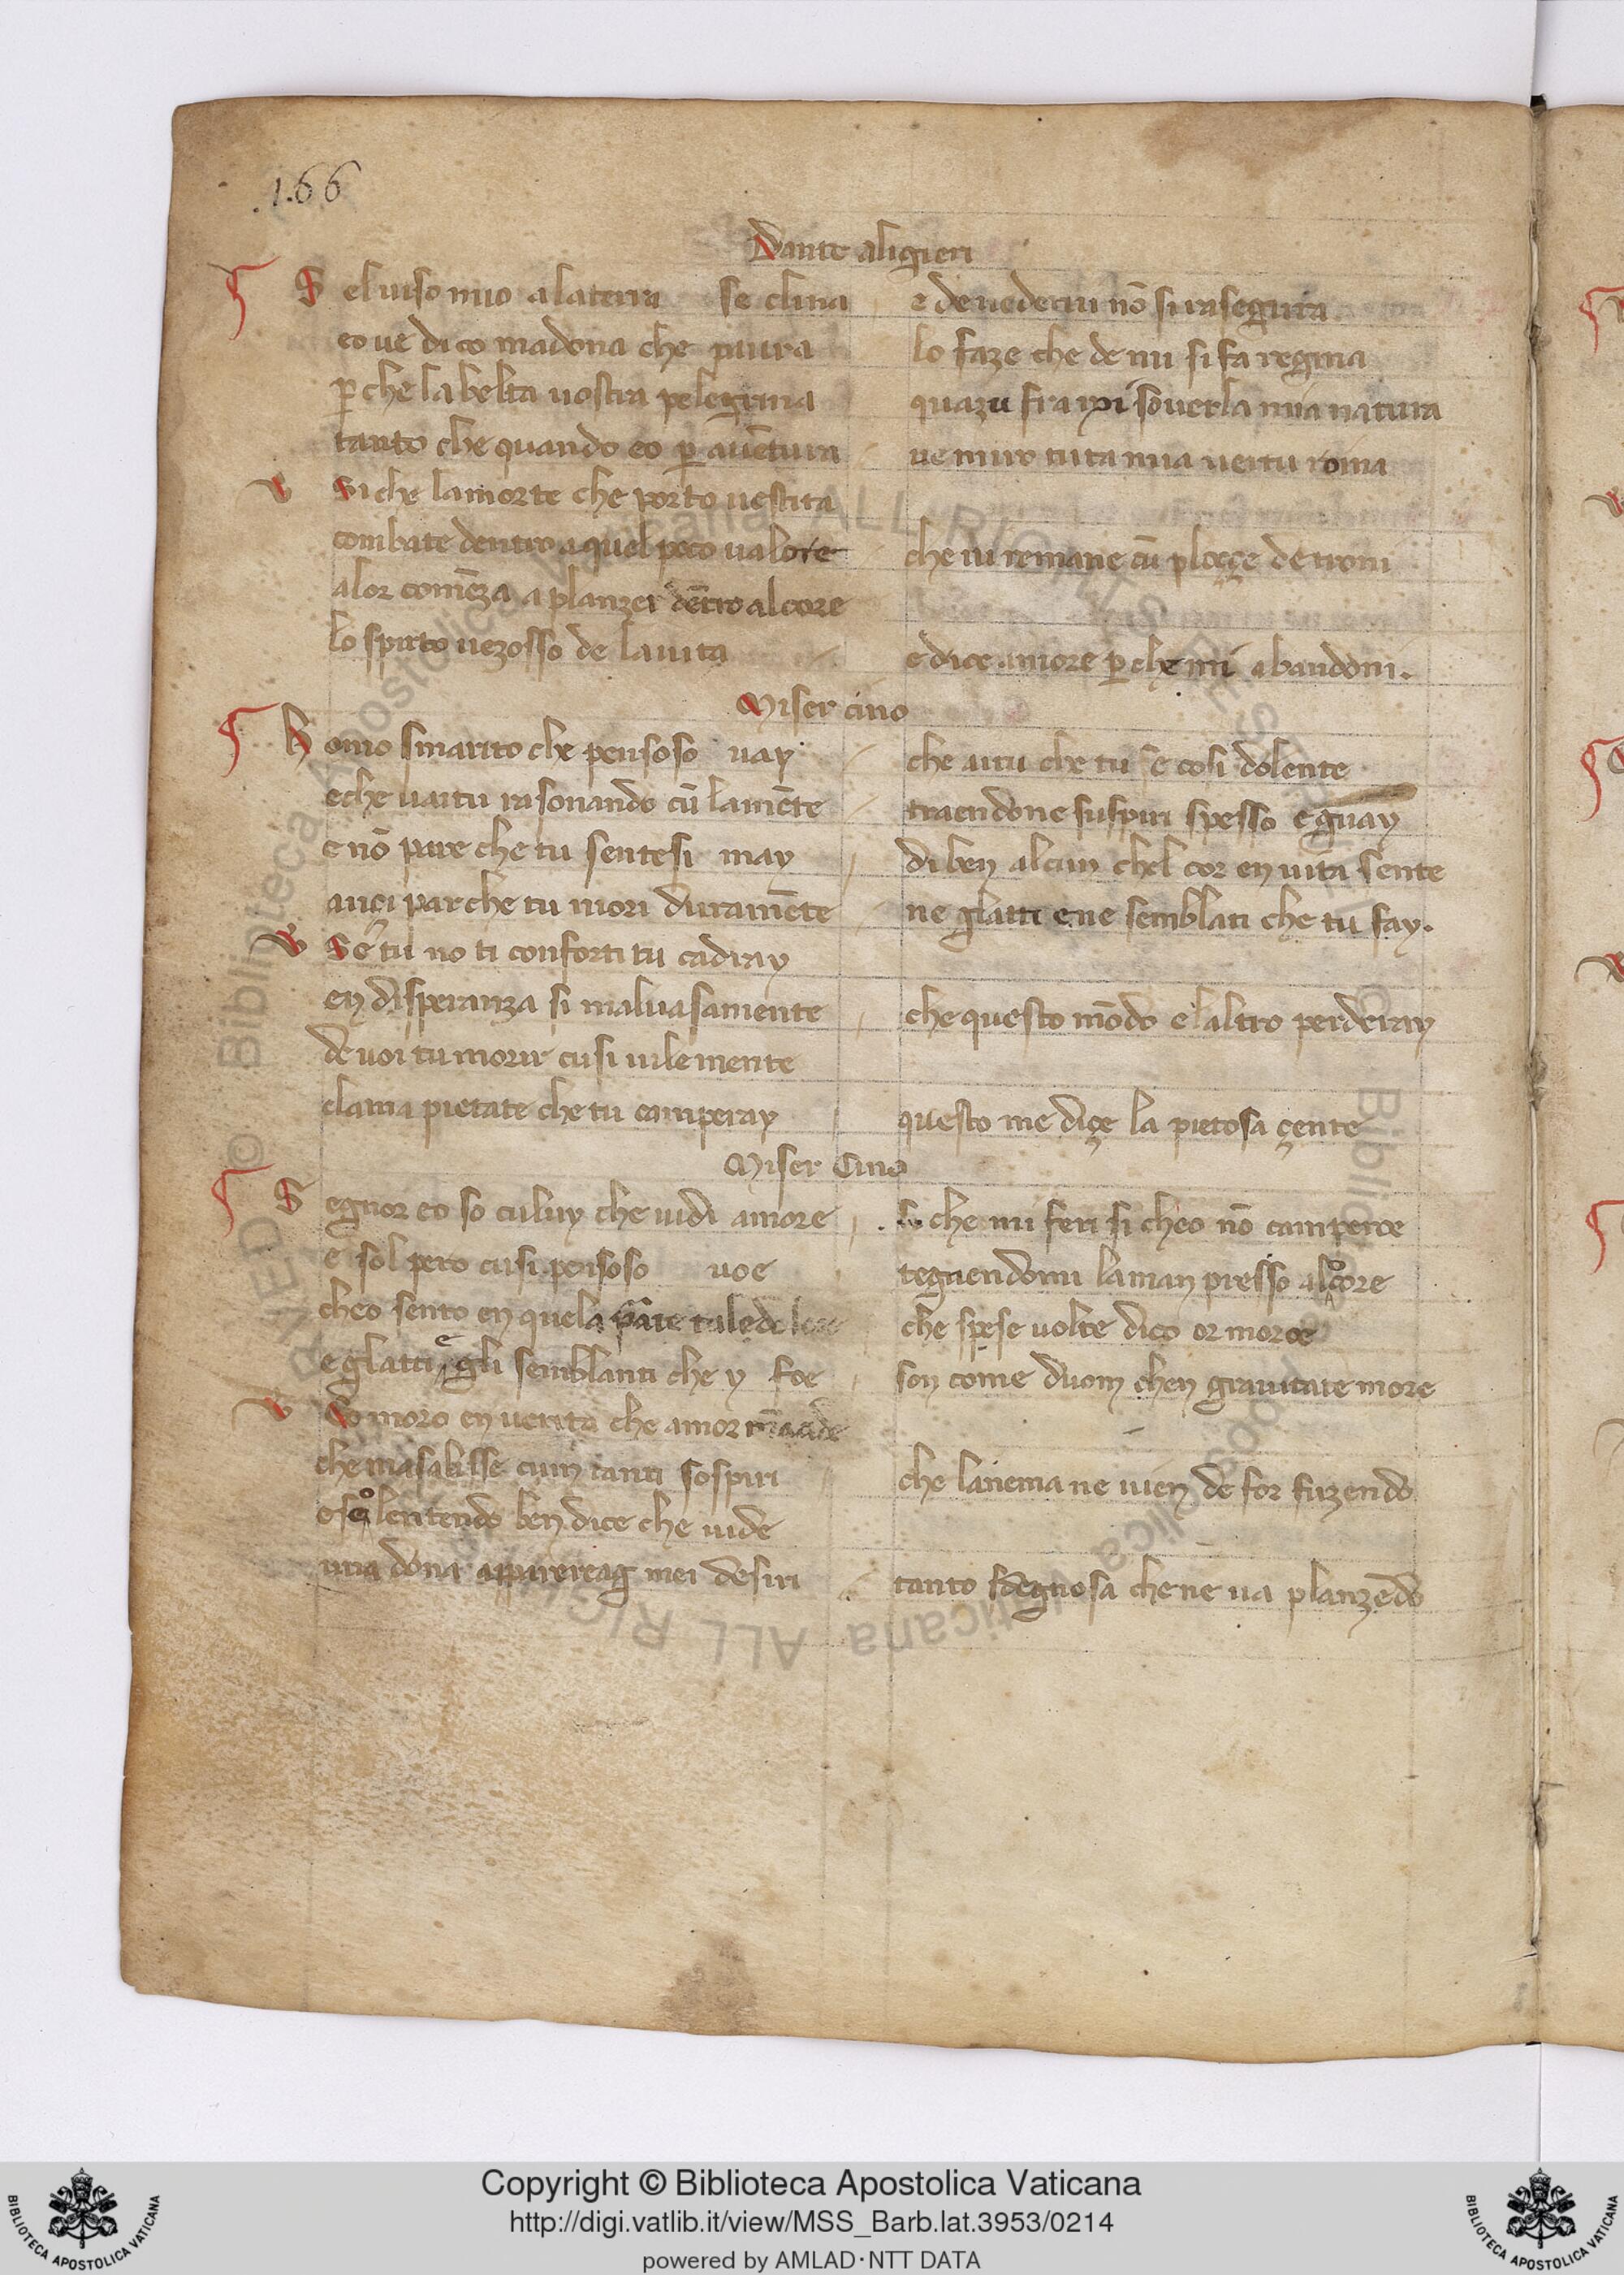 .166
Dante aligieri
S el uiso mio a la terra se clina e de uederui nō si rasegura
eo ue dico madona che paura lo faze che de mi si fa regina
p̱ che la belta uostra pelegrina quazu fra noi souerla mia natura
tanto che quando eo p̱ auētura ue miro tuta mia uertu roina
Si che la morte che porto uestita
combate dentro a quel poco ualore che iu remane cū ploçe de troni
alor comēza a planzer dētro al core
lo spirto uezosso de la uita e dice amore p̱ che mi abandoni.
Miser cino
H omo smarito che pensoso vay che aitu che tu se cosi dolente
e che uaitu rasonando cū la mēte traendone suspiri spesso e guay
e nō pare che tu sentesi may di ben alcun chel cor en uita sente
anci par che tu mori duramēte ne glatti e ne semblati che tu fay.
Se tu no ti conforti tu cadray
en disperanza si maluasamente che questo mōdo e laltro perderay
de uoi tu morir cusi uilemente
clama pietate che tu camperay questo me diçe la pietosa çente
Miser Cino
S egnor eo so culuy che uidi amore che mi feri si cheo nō camperoe
e sol pero cusi pensoso uoe tegnendomi la man presso al core
cheo sento en quela parte tale dolore che spese uolte dico or moroe
e glatti e gli semblanti che y foe son come duom chen grauitate more
Eo moro en uerita che amor
che masalisse cum tanti sospiri che lanema ne uien de for fuzendo
e so lentendo ben dice che uide
una dona apparere ag mei desiri tanto sdegnosa che ne ua planzēdo
Copyright © Biblioteca Apostolica Vaticana
http://digi.vatlib.it/view/MSS_Barb.lat.3953/0214
powered by AMLAD·NTT DATA
BIBLIOTECA APOSTOLICA VATICANA
BIBLIOTECA APOSTOLICA VATICANA